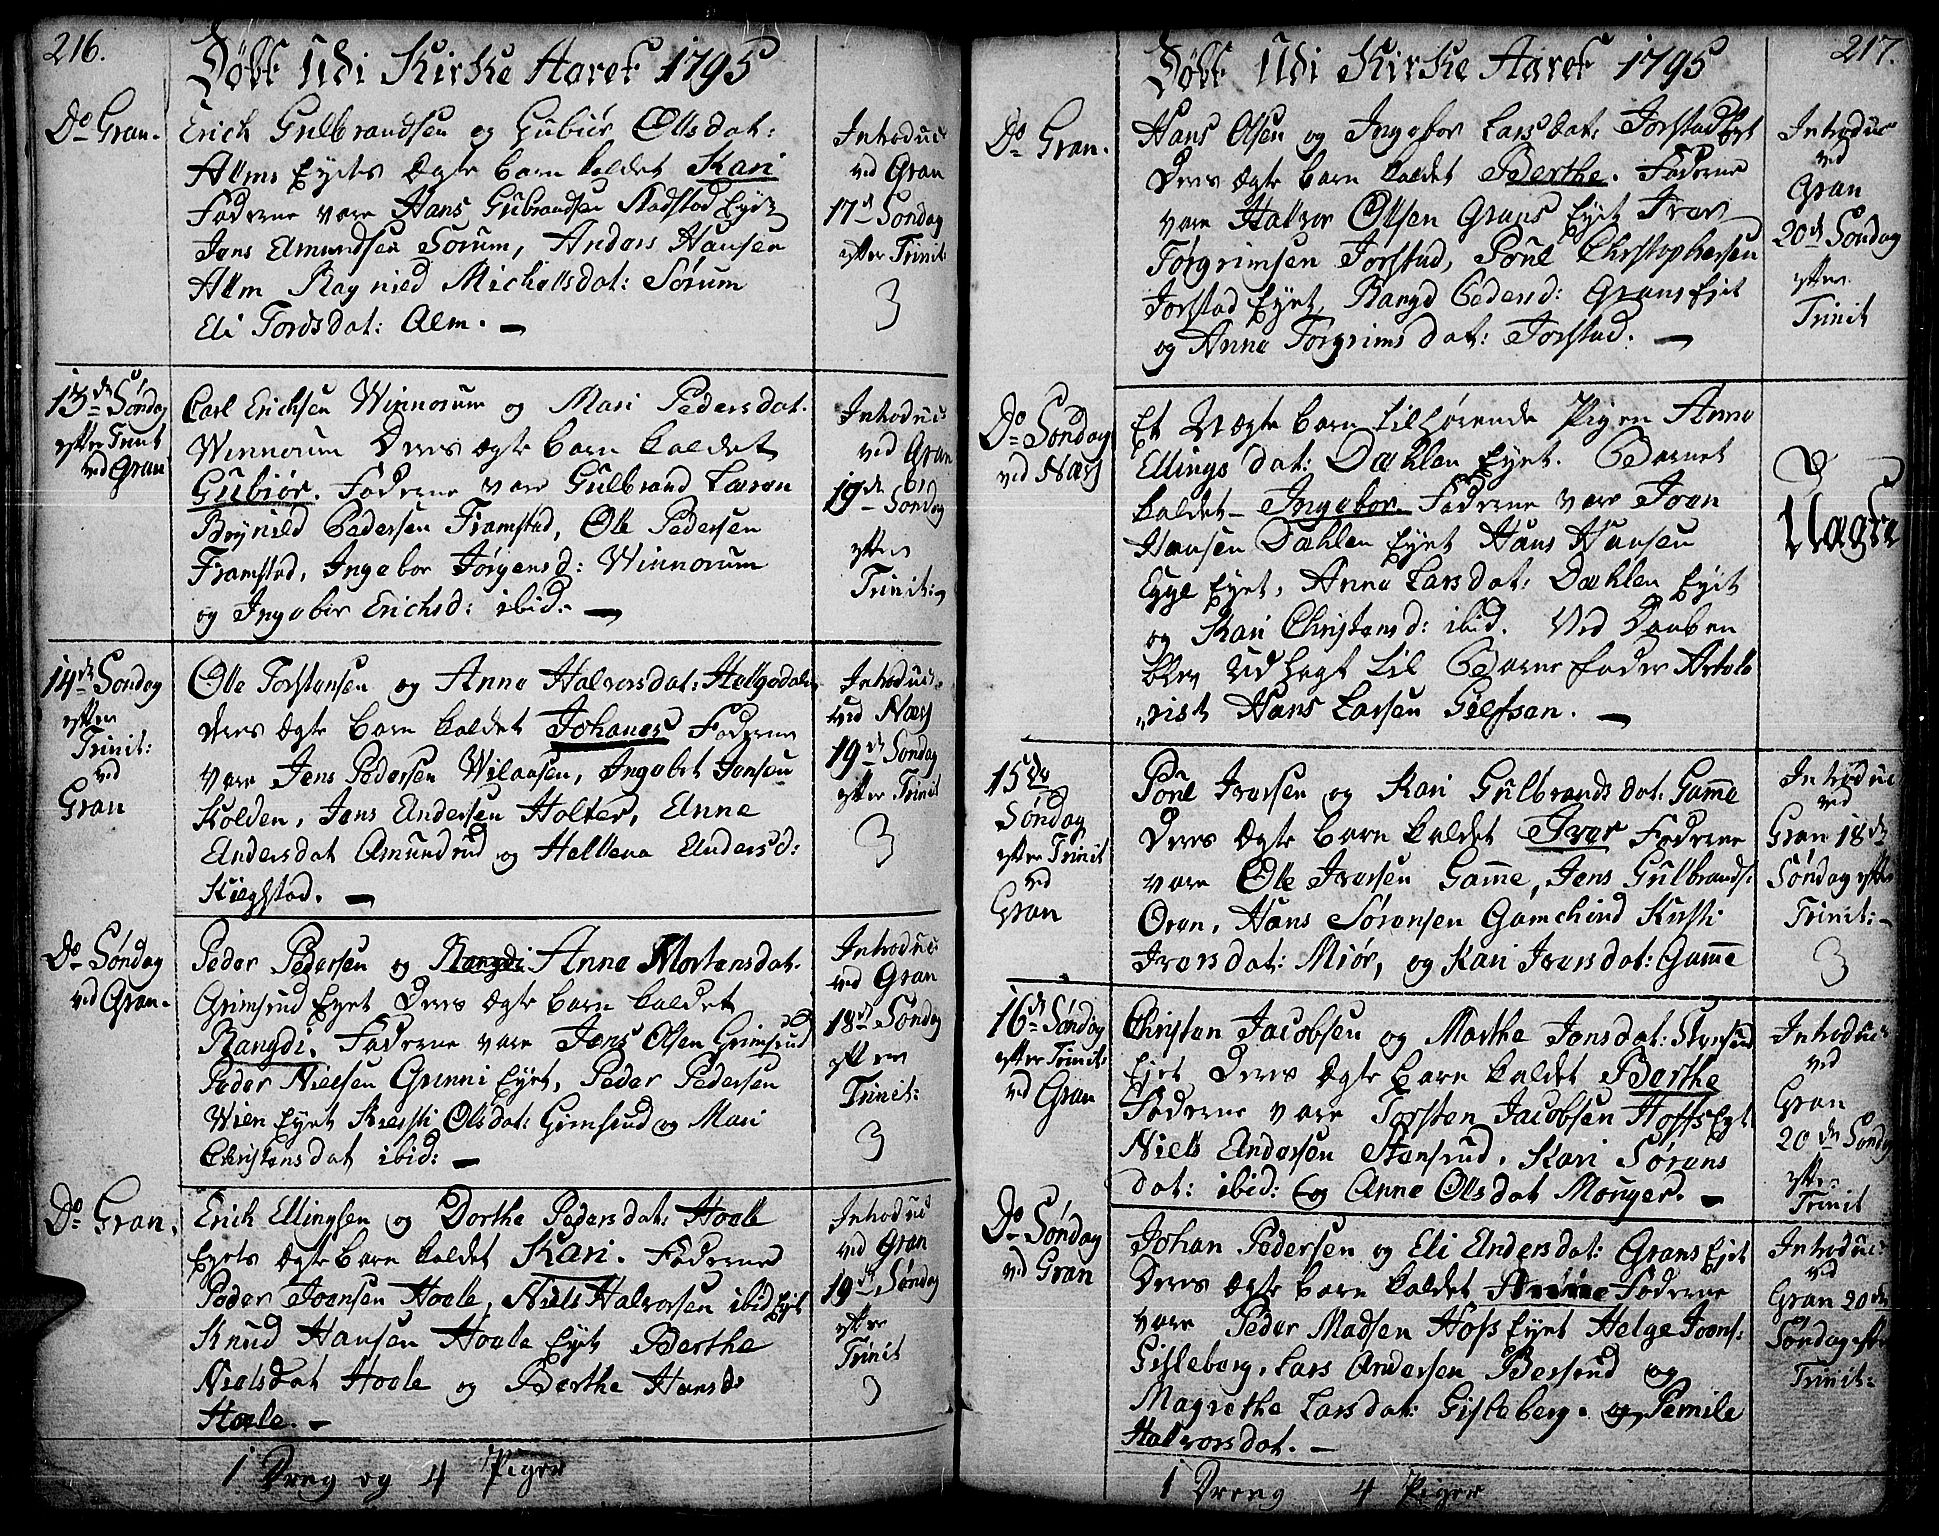 216.
Døbt Udi Kirke Aaret 1795
Do Gran.
Erich Gulbrandsen og Gubiør Olsdat:
Alms Eyets Ægte barn kaldet Kari
Fadderne vare Hans Gubrandsen Kadstad Eyet
Jens Amundsen Sørum, Anders Hansen
Alm Ragnild Michelsdat: Sørum
Eli Tordsdat: Alm. —
Introduc:
ved Gran
17d Søndag
efter Trinit:
3
13de Søndag
efter Trinit
ved Gran
Carl Erichsen Winnorum og Mari Pedersdat:
Winnorum Deres Ægte barn kaldet
Gubiør. Fadderne vare Gulbrand Larsen
Brynild Pedersen Framstad, Ole Pedersen
Framstad, Ingebor Jørgensd: Winnorum
og Ingebor Erichsd: ibid. —
Introduc:
ved Gran
19de Søndag
efter
Trinit:
14de Søndag
efter
Trinit:
ved
Gran
Ole Torstensen og Anne Halvorsdat: Helgedalen
deres Ægte barn kaldet Johanes Fadderne
vare Jens Pedersen Wilansen, Ingebret Jensen
Kolden, Jens Andersen Holter, Anne
Andersdat Amundrud og Hellena Andersd:
Kiegstad. —
Introduc:
ved Næss
19de Søndag
efter Trinit
3
Do Søndag
ved Gran.
Peder Pedersen og Rangdi Anne Mortensdat:
Grimsrud Eyet Deres Ægte barn kaldet
Rangdi. Fadderne vare Jens Olsen Grimsrud
Peder Nielsen Grinni Eyet, Peder Pedersen
Wien Eyet Kiersti Olsdat: Grimsrud og Mari
Christensdat ibid: —
Introduc:
ved Gran
18d Søndag
efter
Trinit:
3
Do Gran.
Erich Ellingsen og Dorthe Pedersdat: Hoele
Eyets Ægte barn kaldet Kari. Fadderne
Peder Joensen Hoele, Niels Halvorsen ibid Eyet
Knud Hansen Hoele Eyet Berthe
Nielsdat Hoele og Berthe Hansd:
Hoele. —
Introduc
ved Gran
19de Søndag
efter
Trinit
3
1 Dreng og 4 Piger
217.
Døbt Udi Kirke Aaret 1795
Do Gran.
Hans Olsen og Ingebor Larsdat: Jorstad Eyet
Deres Ægte barn kaldet Berthe. Fadderne
vare Halvor Olsen Grans Eyet Iver
Torgrimsen Jorstad, Poul Christophersen
Jorstad Eyet, Rangd Pedersd: Grans Eyet
og Anne Torgrimsdat: Jorstad. —
Introduc
ved
Gran
20de Søndag
efter
Trinit
Do Søndag
ved Næss
Et Uægte barn tilhørende Pigen Anne
Ellingsdat: Dæhlen Eyet. Barnet
kaldet Ingebor Fadderne vare Joen
Hansen Dæhlen Eyet Hans Hansen
Egge Eyet, Anne Larsdat: Dæhlen Eyet
og Kari Christensd: ibid. Ved Daaben
blev Udlagt til Barne Fader Artole
„rist Hans Larsen Gulfsen. —
Uægte
15de
Søndag
efter Trinit
ved
Gran
Poul Iversen og Kari Gulbrandsdat: Gamme
Deres Ægte barn kaldet Iver Fadderne
vare Ole Iversen Gamme, Jens Gulbrands:
Oren, Hans Sørensen Gamchind Kirsti
Iversdat: Miør, og Kari Iversdat: Gamme
Introduc
ved
Gran 18de
Søndag efter
Trinit:
3
16de Søndag
efter Trinit:
ved Gran
Christen Jacobsen og Marthe Jensdat: Stensrud
Eyet Deres Ægte barn kaldet Berthe
Fadderne vare Torsten Jacobsen Hoffs Eyet
Niels Andersen Stensrud, Kari Sørens
dat: ibid: og Anne Olsdat Monger. —
Introduc:
ved
Gran
20de Søndag
efter
Trinit
Do Søndag
ved Gran
Johan Pedersen og Eli Andersdat: Grans Eyet
Deres Ægte barn kaldet Anne Fadderne
vare Peder Madsen Hofs Eyet Helge Joens:
Gisleberg, Lars Andersen Bersrud og
Magrethe Larsdat: Gisleberg. og Pernile
Halvorsdat. —
Introduc:
ved
Gran 20de
Søndag efter
Trinit:
1 Dreng 4 Piger